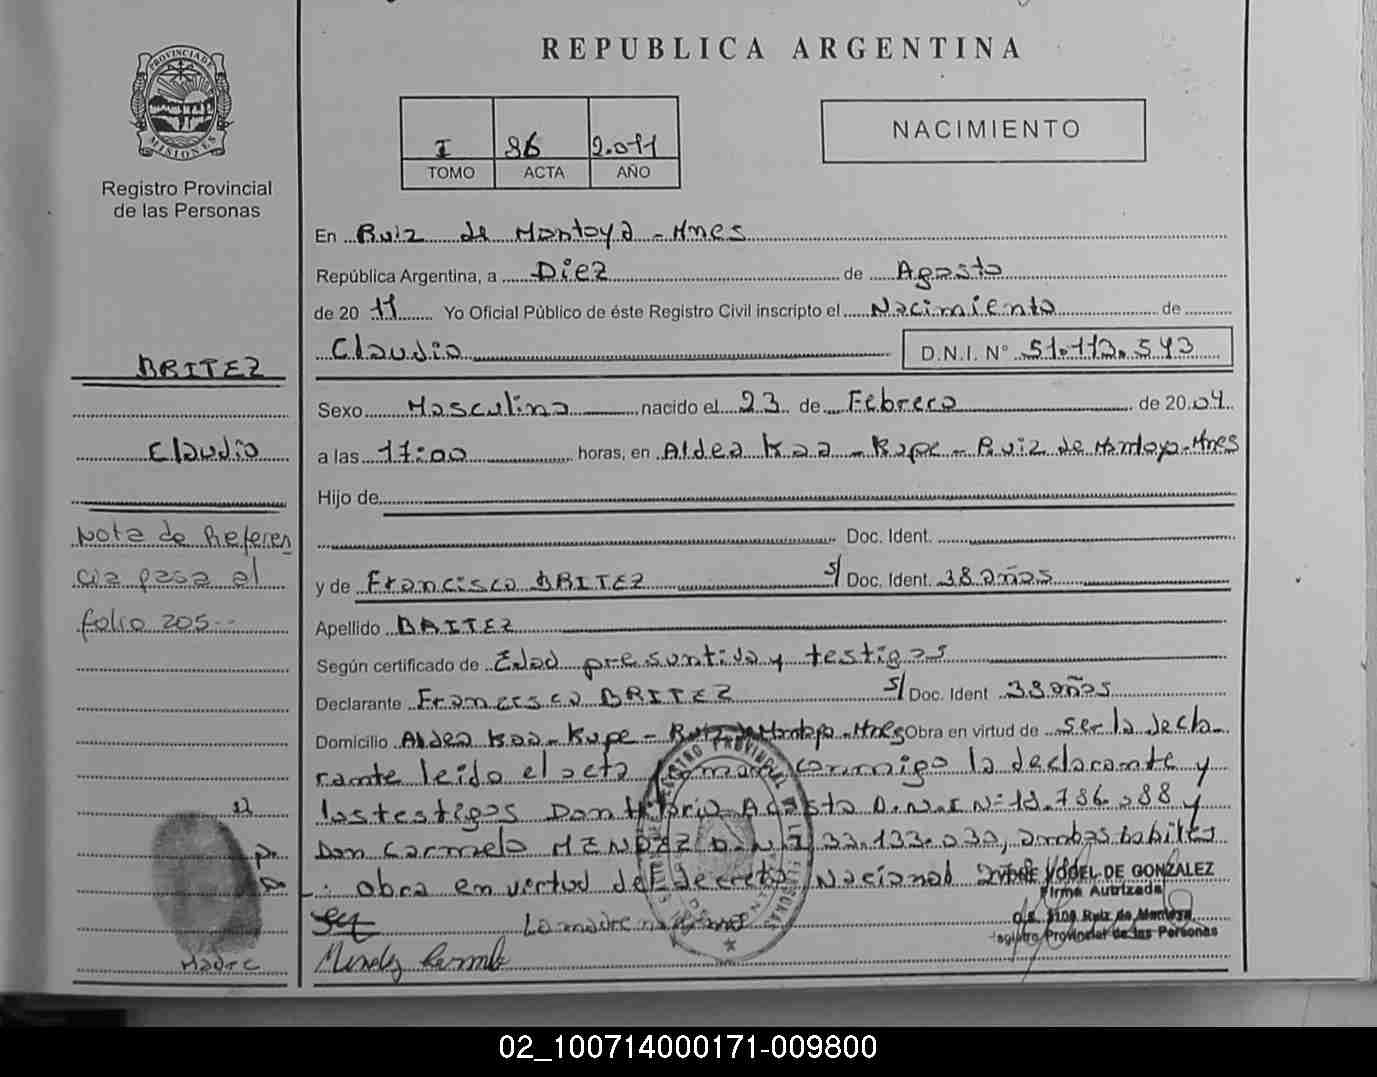 PROVINCIA DE
MISIONES
Registro Provincial
de las Personas
BRITEZ
Claudio
Nota de Referen
cia pasa al
folio 205--
Madre
REPUBLICA ARGENTINA
I 96 2.011
TOMO ACTA AÑO
NACIMIENTO
En Ruiz de Montoya - Mnes
República Argentina, a Diez de Agosto
de 20 11 Yo Oficial Público de éste Registro Civil inscripto el Nacimiento de
Claudio D.N.I. N° 51.113.543
Sexo Masculino nacido el 23 de Febrero de 20.04
a las 17:00 horas, en Aldea Kaa - Kupe - Ruiz de Montoya - Mnes
Hijo de
Doc. Ident.
y de Francisca BRITEZ s/ Doc. Ident. 38 años
Apellido BRITEZ
Según certificado de Edad presuntiva y testigos
Declarante Francisca BRITEZ s/ Doc. Ident 38 años
Domicilio Aldea Kaa - Kupe - Ruiz de Montoya - Mnes Obra en virtud de ser la decla
rante leido el acta conmigo la declarante y
los testigos Don Acosta D.N.I N= 18.786.088 y
Don Carmelo MENDEZ D.N.I 33.133.030, ambos habiles
L: obra en vertud del Decreto Nacional
YODEL DE GONZALEZ
Firma Autrizada
La madre no firma
Ruiz de Montoya
Registro Provincial de las Personas
Mendez Carmelo
REGISTRO PROVINCIAL
02_100714000171-009800